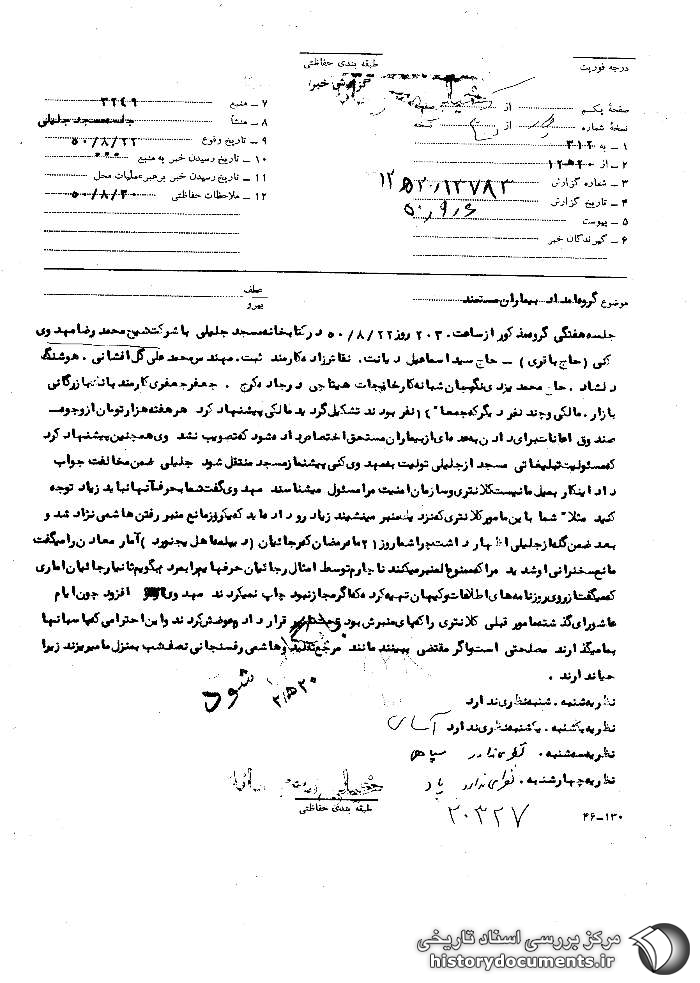 درجه فوریت
طبقه بندی حفاظتی
گزارش خبر
صفحهٔ یکم از صفحه
نسخهٔ شماره از نسخه
۱ – به ۳۱۲
۲ – از ۱۲ﻫ۲۰
۳ – شماره گزارش ۱۲ﻫ۲۰/۱۲۷۸۳
۴ – تاریخ گزارش ۵۰/۹/۶
۵ – پیوست
۶ – گیرندگان خبر
۷ – منبع ۳۲۴۹
۸ – منشأ جلسه مسجد جلیلی
۹ – تاریخ وقوع ۵۰/۸/۲۲
۱۰ – تاریخ رسیدن خبر به منبع
۱۱ – تاریخ رسیدن خبر برهبر عملیات محل
۱۲ – ملاحظات حفاظتی ۵۰/۸/۳۰
موضوع گروه امداد بیماران مستمند
عطف
پیرو
جلسه هفتگی گروه مذکور از ساعت ۲۰۳۰ روز ۵۰/۸/۲۲ در کتابخانه مسجد جلیلی با شرکت شیخ محمد رضا مهدوی
کنی (حاج باقری) – حاج سید اسماعیل دیانت، نقا ترزاده کارمند ثبت، مهندس محمد علی گل افشانی، هوشنگ
دلشاد، حاج محمد یزدی نگهبان شبانه کارخانجات هیتاچی در جاده کرج، جعفر جعفری کارمند بانک بازرگانی
بازار، مالکی و چند نفر دیگر که جمعا" ۱۴ نفر بودند تشکیل گردید مالکی پیشنهاد کرد هر هفته هزار تومان از وجوه
صندوق اعانات برای دادن به عده‌ای از بیماران مستحق اختصاص داده شود که تصویب نشد وی همچنین پیشنهاد کرد
که مسئولیت تبلیغاتی مسجد از جلیلی تولیت به مهدوی کنی پیشنماز مسجد منتقل شود جلیلی ضمن مخالفت جواب
داد اینکار بمیل ما نیست کلانتری و سازمان امنیت مرا مسئول میشناسند مهدوی گفت شما بحرف آنها نباید زیاد توجه
کنید مثلا" شما با این مامور کلانتری که نزدیک منبر مینشیند زیاد رو داده‌اید که یکروز مانع منبر رفتن هاشمی نژاد شد و
بعد ضمن گله از جلیلی اظهار داشت چرا شما روز ۲۱ ماه رمضان که رجائیان (دیپلمه اهل بجنورد) آمار معادن را میگفت
مانع سخنرانی او شدید مرا که ممنوع المنبر میکنند ناچارم توسط امثال رجائیان حرفهایم را بمردم بگویم تا نیا رجائیان اماری
که میگفت از روی روزنامه‌های اطلاعات و کیهان تهیه کرده که اگر مجاز نبود چاپ نمیکردند مهدوی افزود چون ایام
عاشورای گذشته مامور قبلی کلانتری را که پای منبرش بود قرار داد و عوضش کردند و این احترامی که پاسبانها
بما میگذارند مصلحتی است و اگر مقتضی ببینند مانند مرجع تقلید و هاشمی رفسنجانی نصف شب بمنزل ما میریزند زیرا
حیا ندارند .
نظریه شنبه . شنبه نظری ندارد
نظریه یکشنبه . یکشنبه نظری ندارد آسای
نظریه سه‌شنبه . نظری ندارد سپاهی
نظریه چهارشنبه . نظری ندارد پاد
شود
۲۰ﻫ۳
۲۰۳۲۷
طبقه بندی حفاظتی
۴۶–۱۳۰
مرکز بررسی اسناد تاریخی
historydocuments.ir